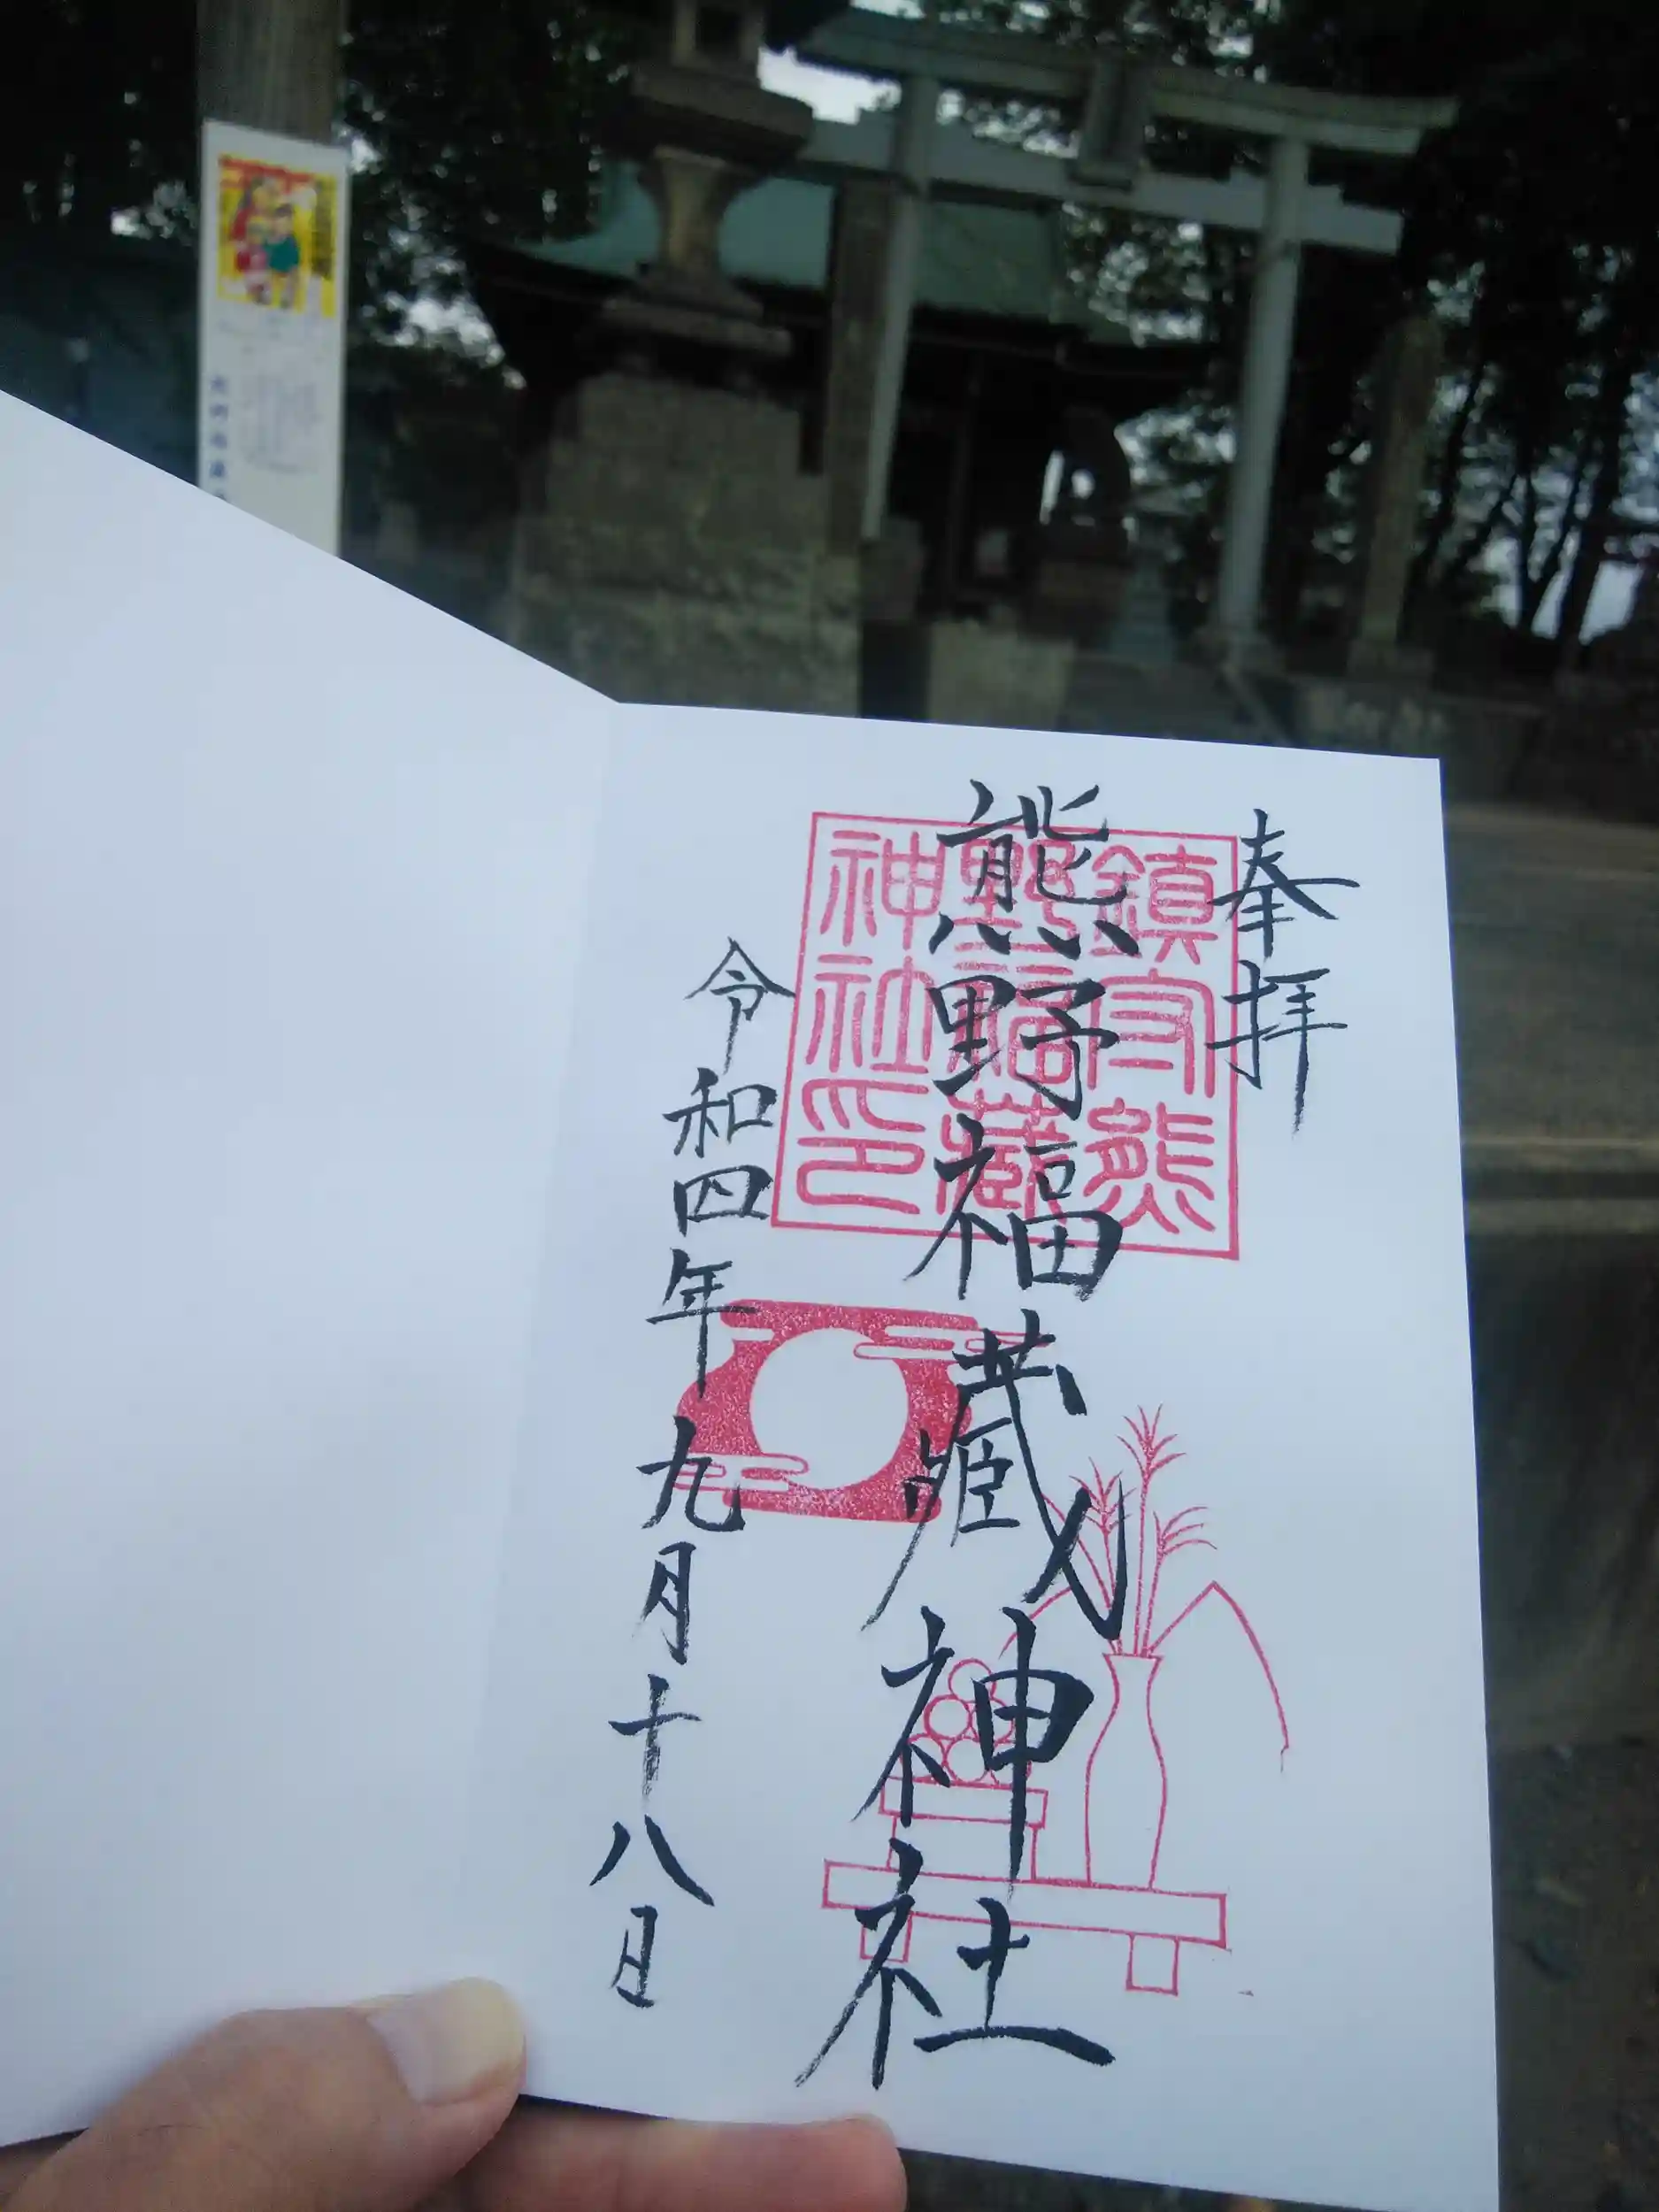 奉拝
熊野福藏神社
令和四年九月十八日
鎮守熊
野福藏
神社印